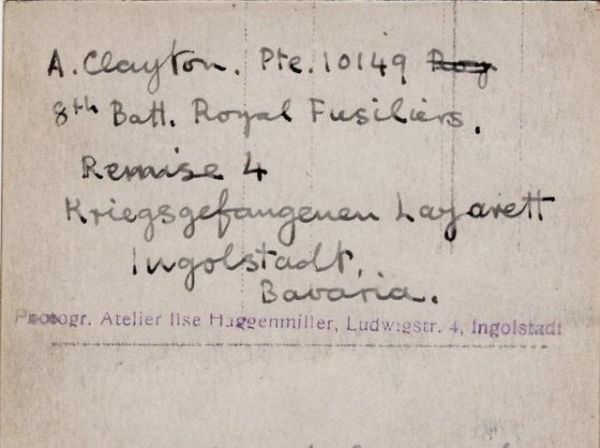 A. Clayton. Pte. 10149 Roy
8th Batt. Royal Fusiliers.
Remise 4
Kriegsgefangenen Lazarett
Ingolstadt,
Bavaria.
Photogr. Atelier Ilse Haggenmiller, Ludwigstr. 4, Ingolstadt